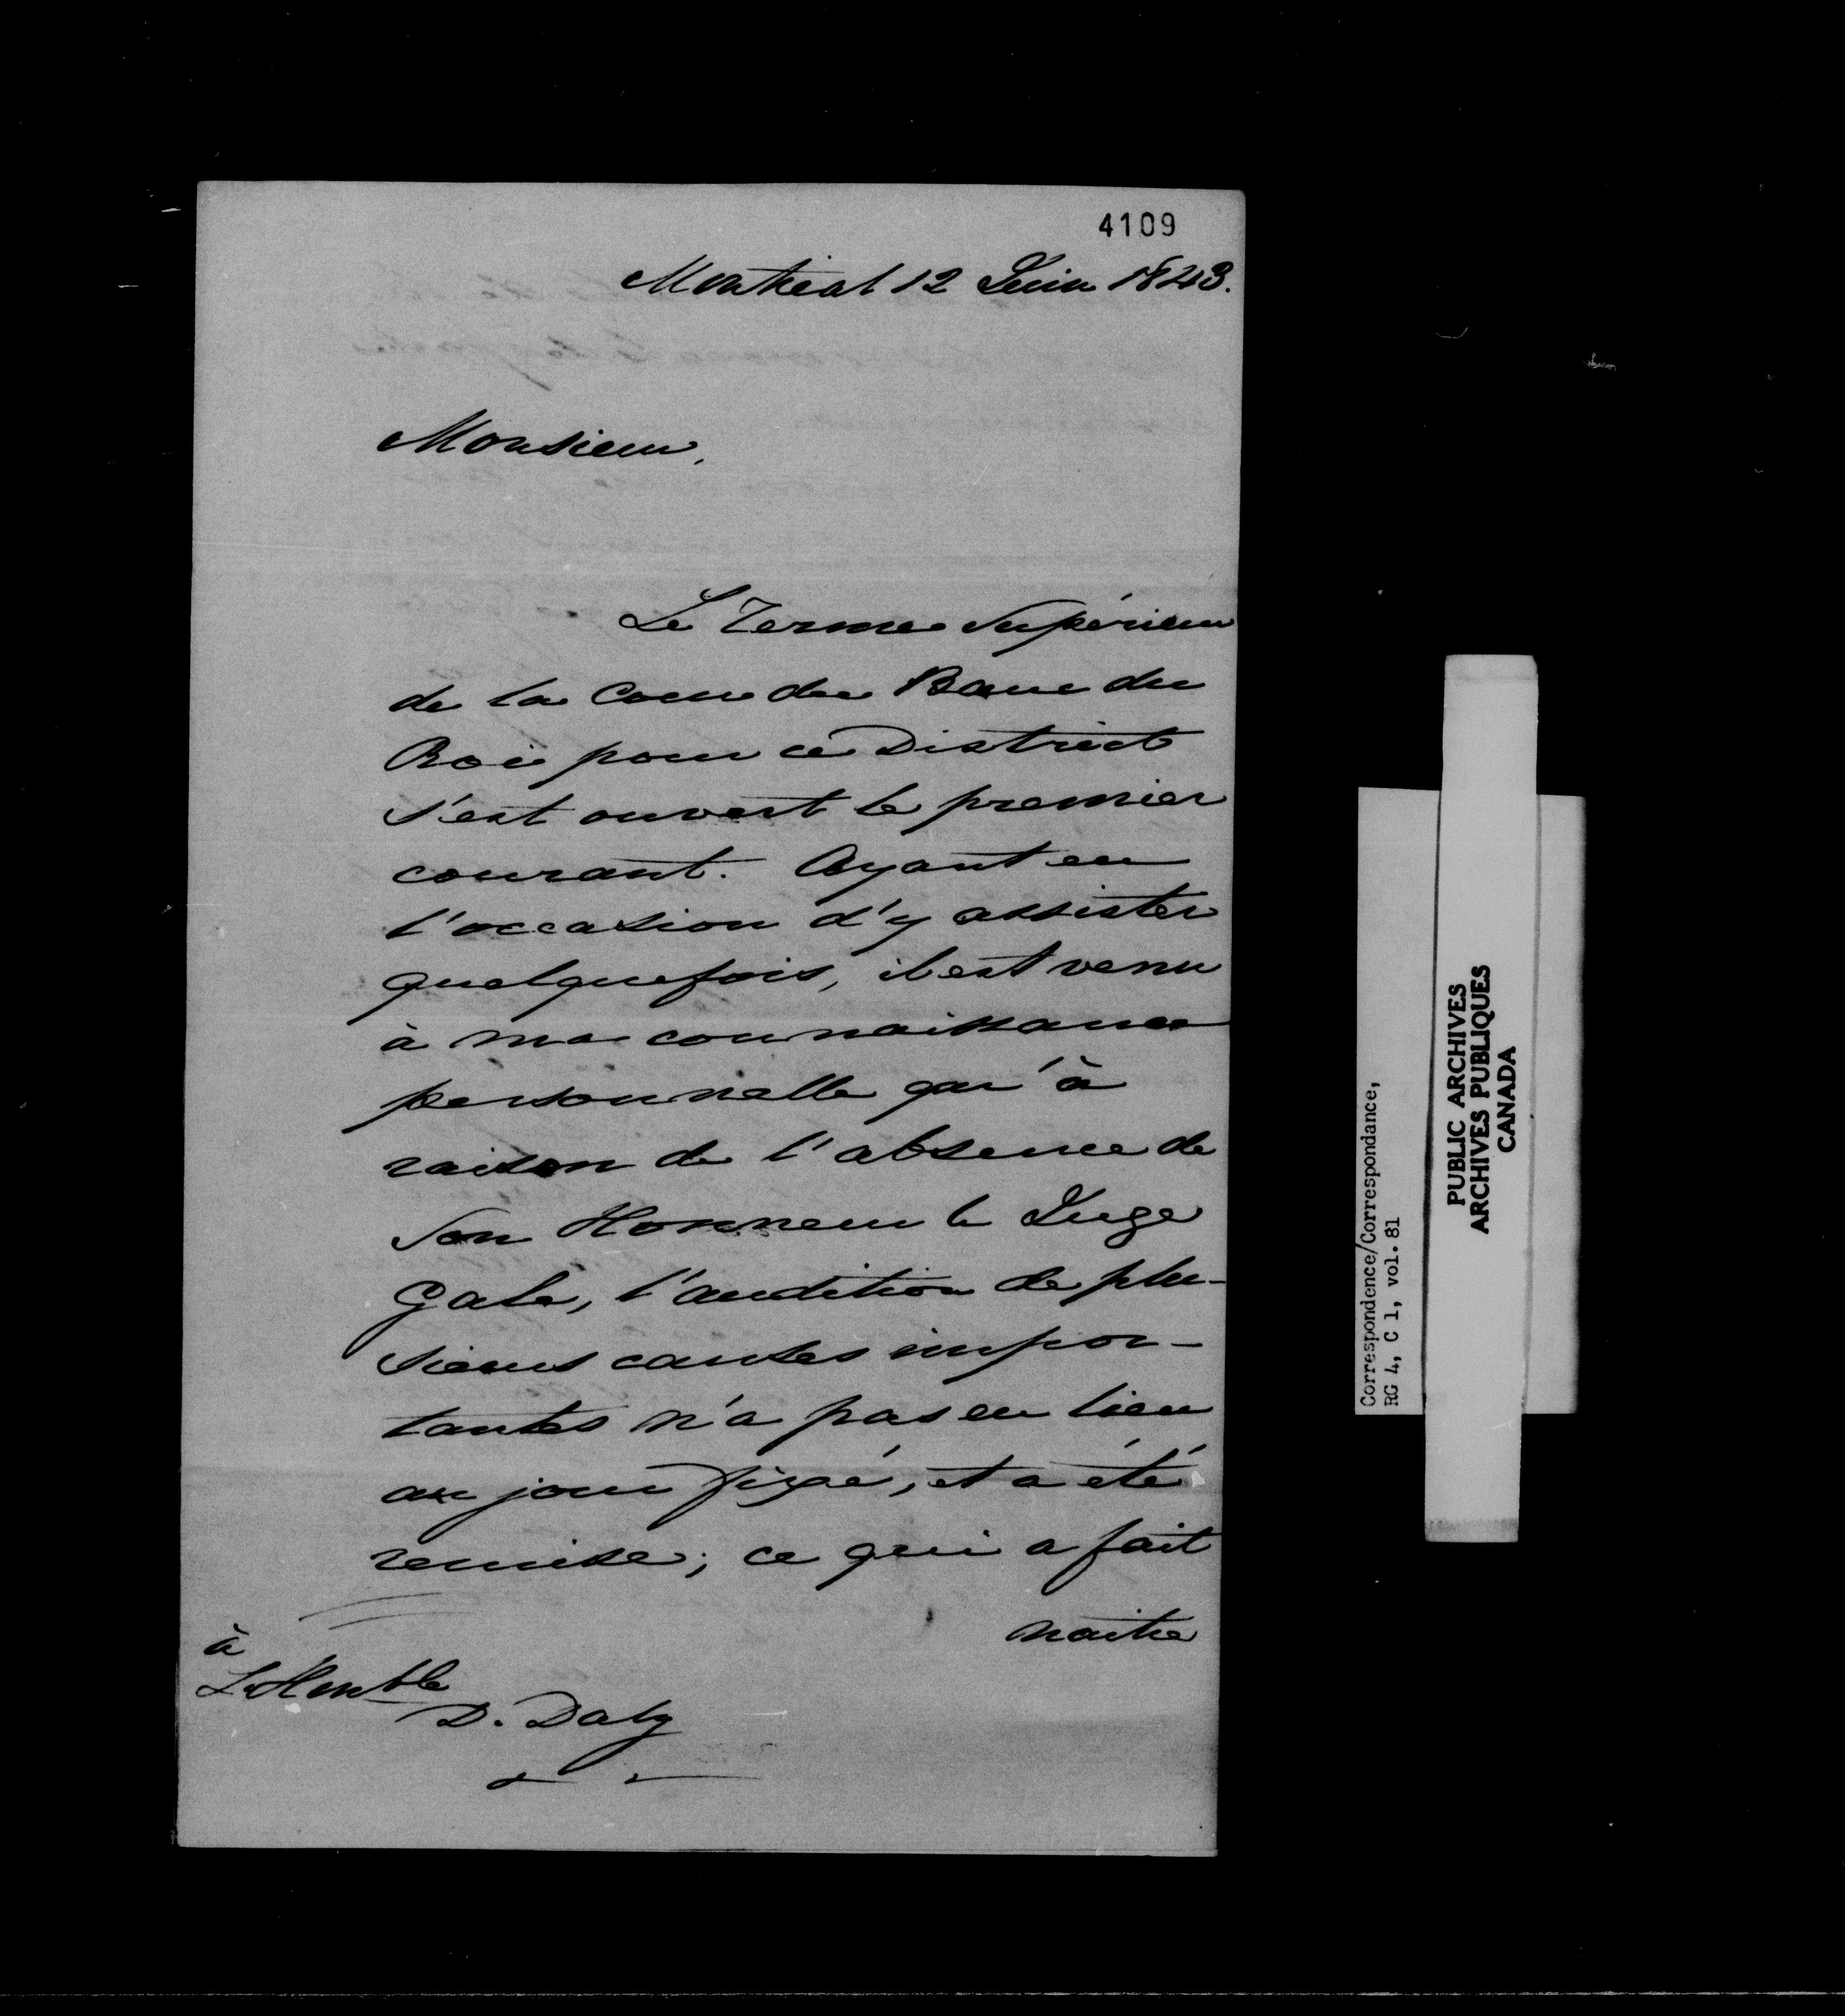 4109
Montréal 12 Juin 1843.
Monsieur,
Le Terme Supérieur
de la Cour du Banc du
Roi pour ce District
s'est ouvert le premier
courant. Ayant eu
l'occasion d'y assister
quelquefois, il est venu
à ma connaissance
personnelle qu'à
raison de l'absence de
Son Honneur le Juge
Gale, l'audition de plu-
sieurs causes impor-
tantes n'a pas eu lieu
au jour fixé, et a été
remise; ce qui a fait
naitre
à
L'Honble
D. Daly
Correspondence/Correspondance,
RG 4, C 1, vol. 81
PUBLIC ARCHIVES
ARCHIVES PUBLIQUES
CANADA